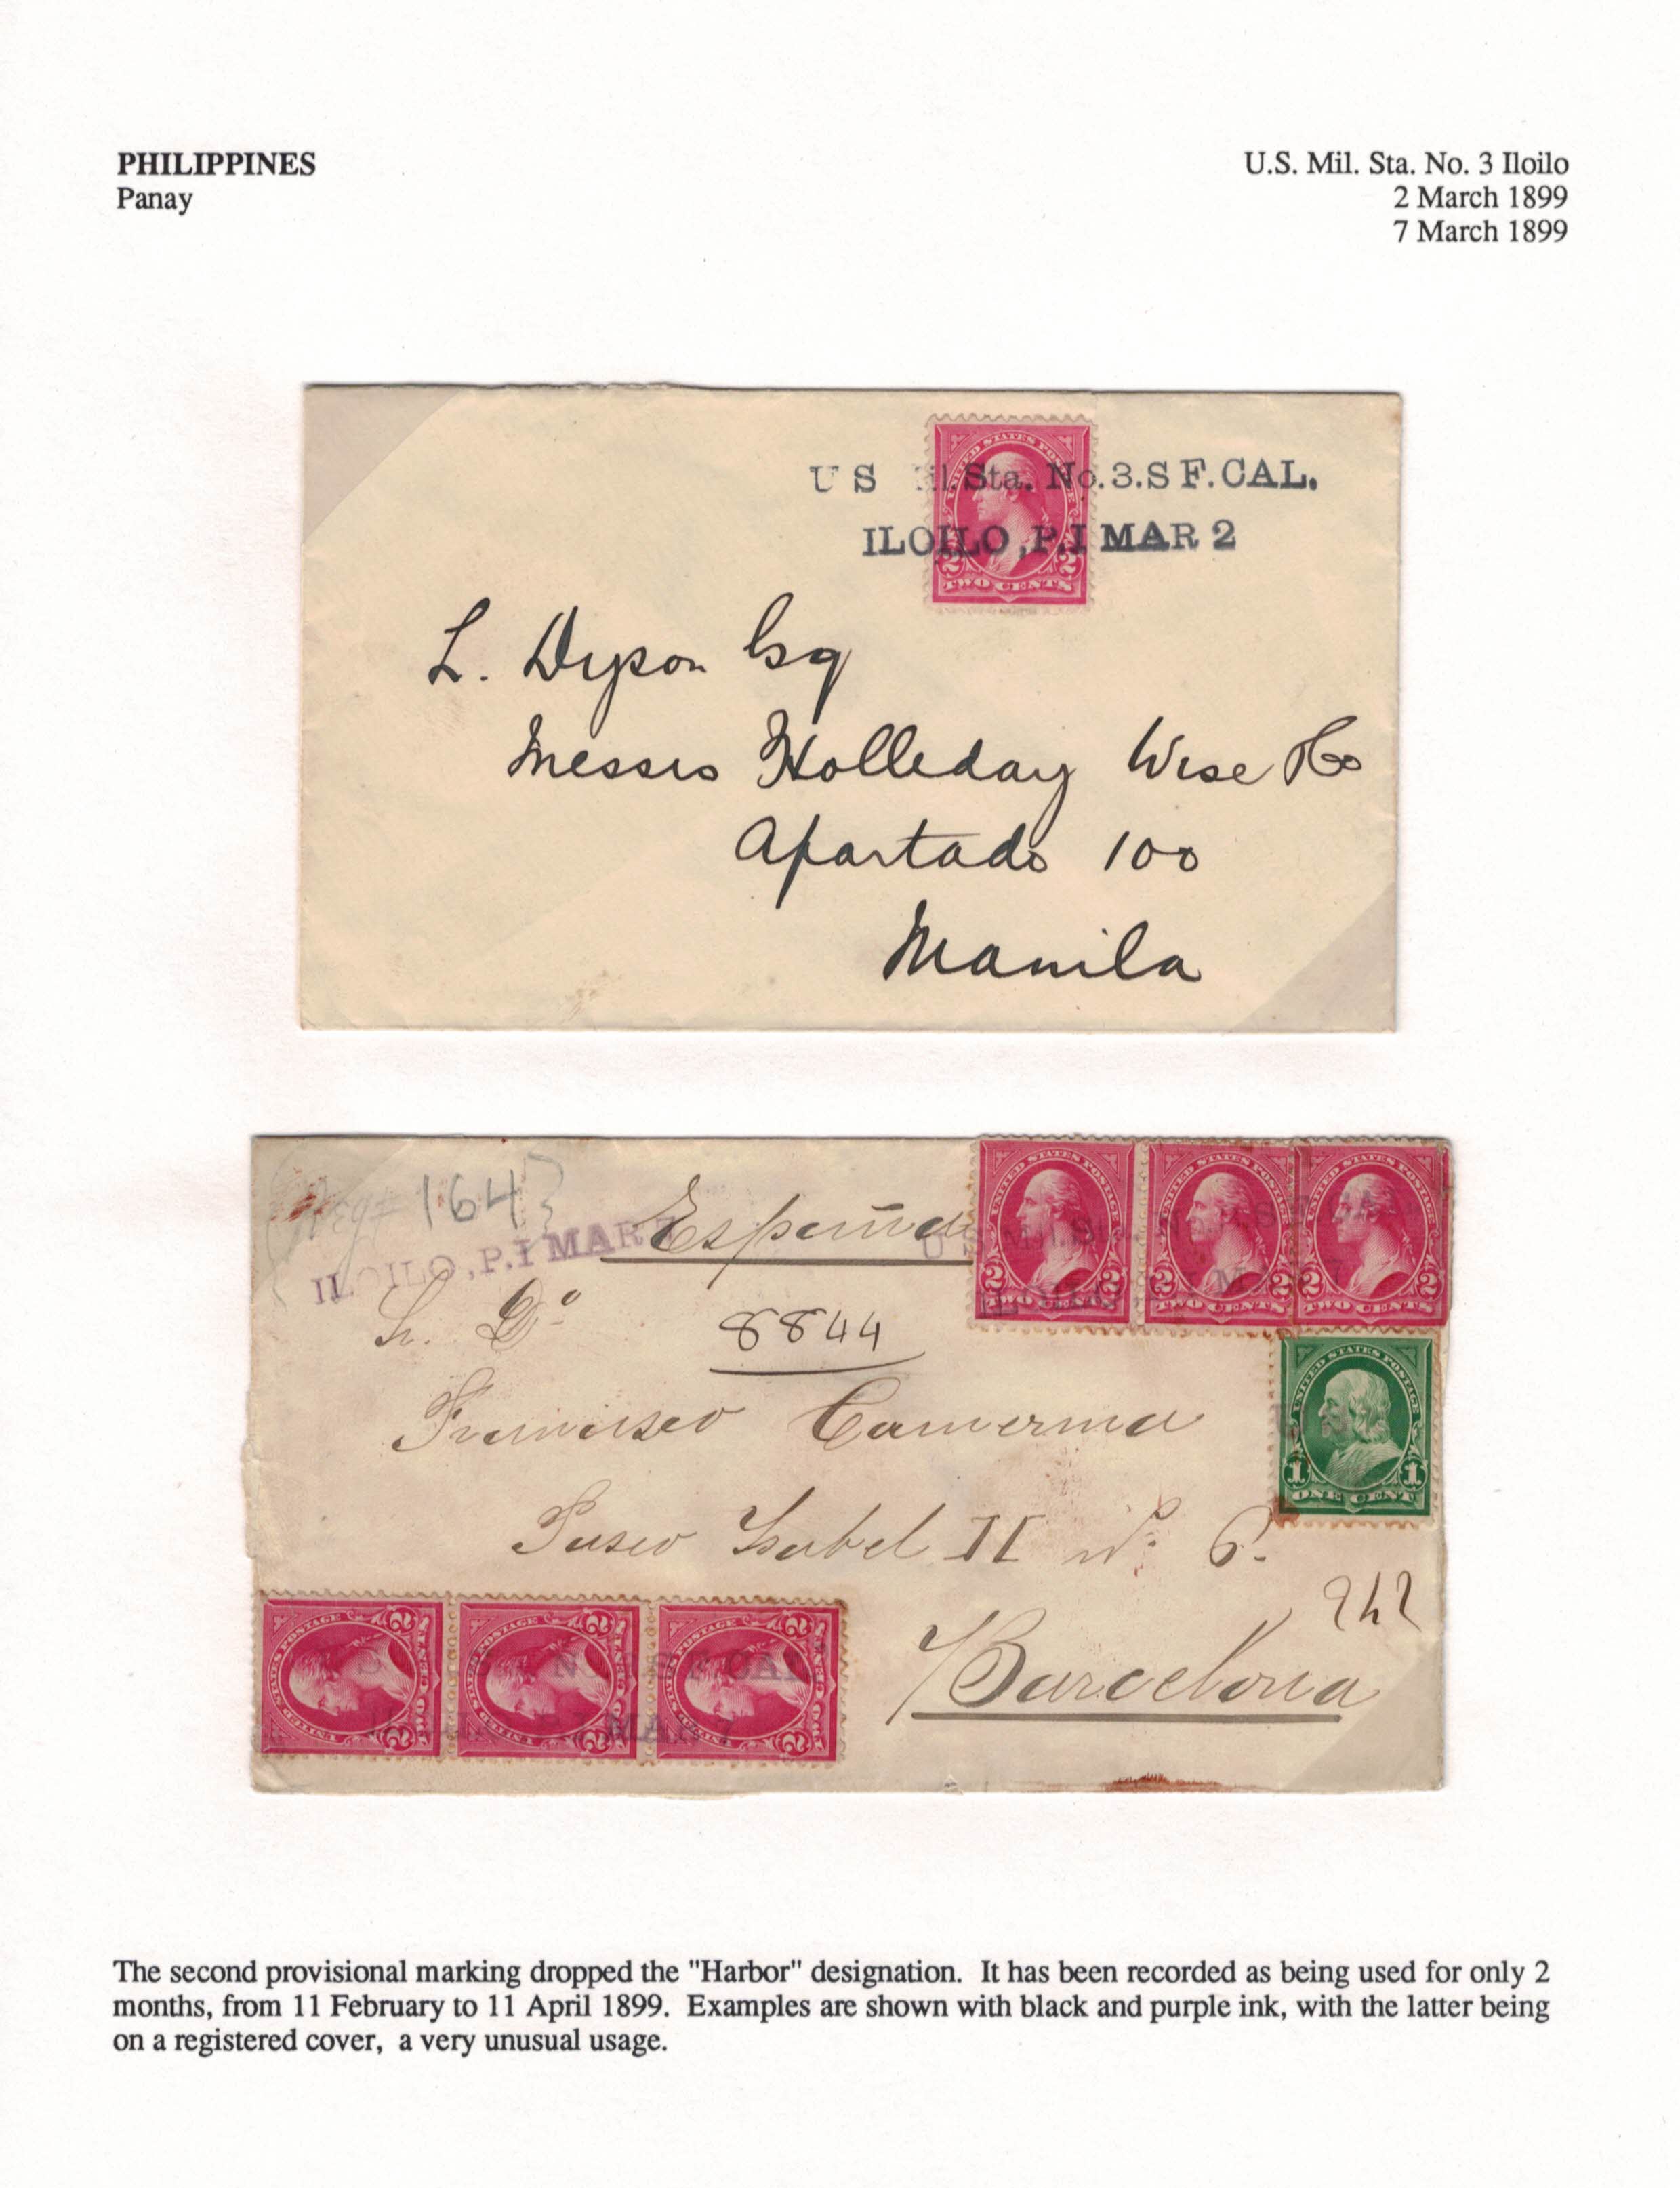 PHILIPPINES
Panay
U.S. Mil. Sta. No. 3 Iloilo
2 March 1899
7 March 1899
UNITED STATES POSTAGE
U S Mil.Sta. No.3.S F.CAL.
ILOILO,P.I MAR 2
2 2
TWO CENTS
L. Dyson Esq
Messrs Holleday Wise & Co
Apartado 100
Manila
Reg# 164
España
ILOILO,P.I MAR 7
UNITED STATES POSTAGE
UNITED STATES POSTAGE
UNITED STATES POSTAGE
U S Mil.Sta.
ILOILO, P.I MAR 7
2 2 2 2 2 2
TWO CENTS TWO CENTS TWO CENTS
Sr. Dn
8844
UNITED STATES POSTAGE
1 1
ONE CENT
Francisco Camerma
Paseo Isabel II No. 6.
242
Barcelona
No.3.S F.CAL.
MAR 7
The second provisional marking dropped the "Harbor" designation.  It has been recorded as being used for only 2
months, from 11 February to 11 April 1899.  Examples are shown with black and purple ink, with the latter being
on a registered cover,  a very unusual usage.